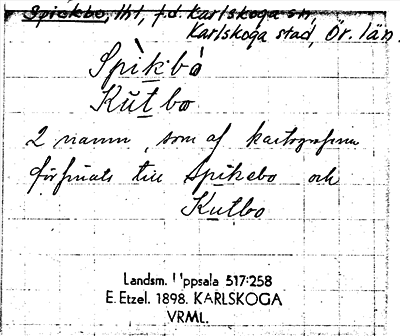 Spickbo, lht, f.d. Karlskoga sn,
Karlskoga stad, Ör. län.
Spìkbò
Kŭtbo
2 namn, som af kartograferna
förfinats till Spikebo och
Kutbo
Landsm. Uppsala 517:258
E. Etzel. 1898. KARLSKOGA
VRML.